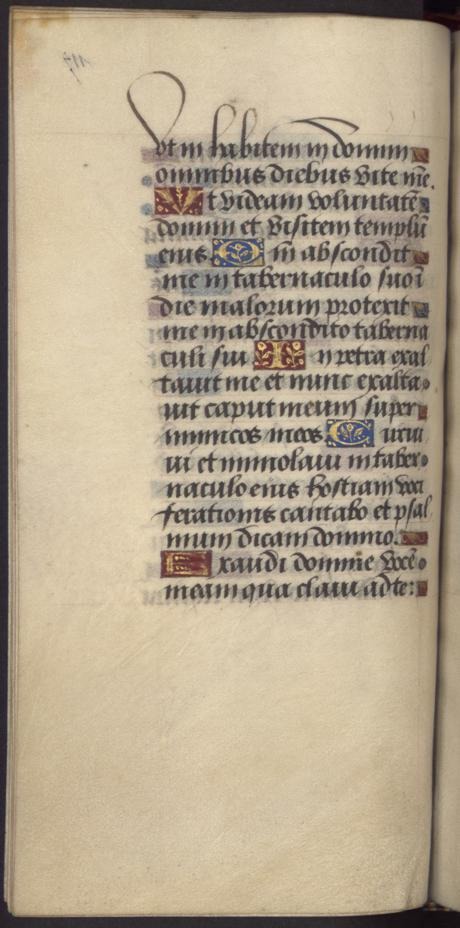 Vt in habitem in domum
omnibus diebus vite me.
Vt videam voluntatē
domini et visitem templū
eius. Qm̄ abscondit
me in tabernaculo suo ī
die malorum protexit
me in abscondito taberna
culi sui In petra exal
tauit me et nunc exalta
uit caput meum super
inimicos meos Circui
ui et immolaui in taber
naculo eius hostiam voci
ferationis cantabo et psal
mum dicam domino.
Exaudi domine vocē
meam qua claui ad te: